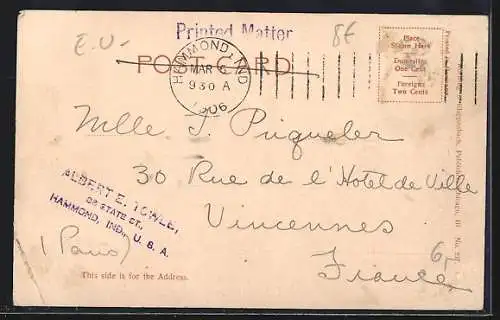 Printed Matter
E.U.
8€
POST CARD
HAMMOND, IND
MAR 6
930 A
1906
Place
Stamp Here
Domestic
One Cent
Foreign
Two Cents
Mlle J.
30 Rue de l'Hotel de Ville
Vincennes
(Paris)
France
6,
ALBERT E. TOWLE,
STATE ST.,
HAMMOND, IND., U. S. A.
This side is for the Address.